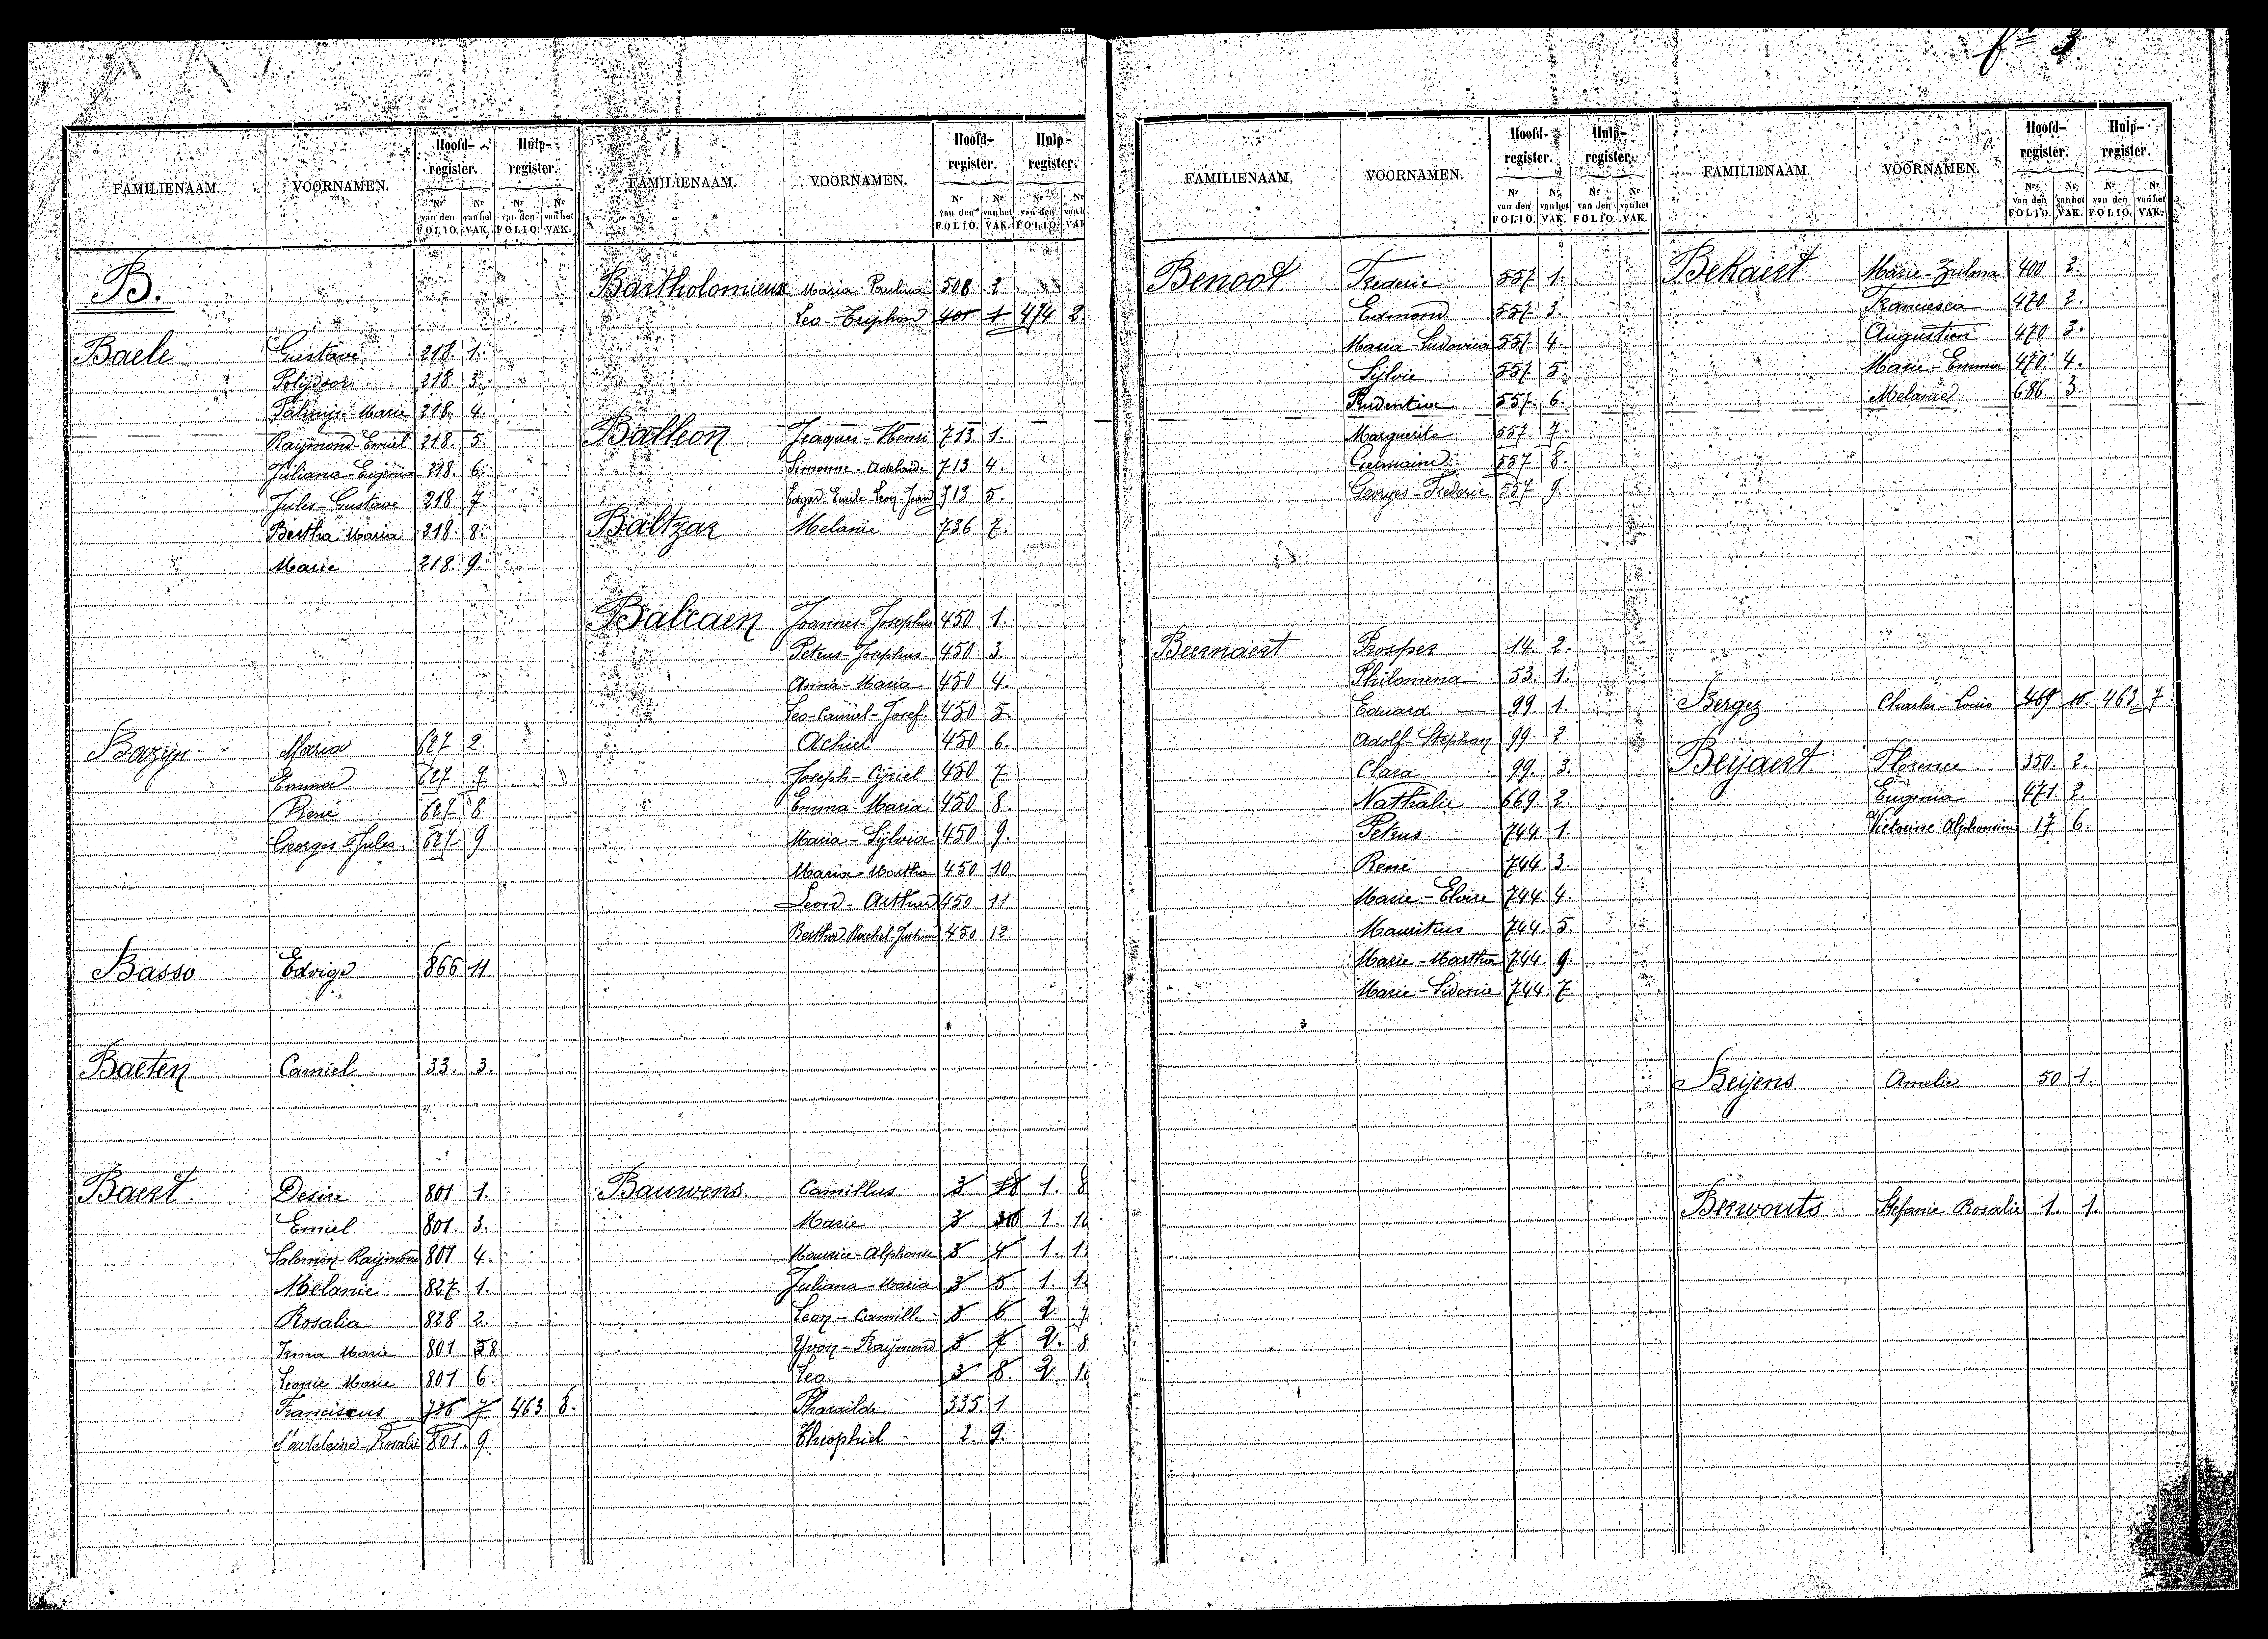 fo 3
FAMILIENAAM. VOORNAMEN. Hoofd-register. Hulp-register.
Nr van den FOLIO. Nr van het VAK. Nr van den FOLIO. Nr van het VAK.
B.
Baele Gustave 218. 1.
Polijdoor 218. 3.
Palmijr-Marie 218. 4.
Raijmond-Emiel 218. 5.
Juliana-Eugenia 218. 6.
Jules-Gustave 218. 7.
Bertha Maria 218. 8.
Marie 218. 9.
Bazyn Maria 627 2.
Emma 627 7
René 627 8
Georges Jules 627 9
Basso Edvige 866 11
Baeten Camiel 33. 3.
Baert. Desire 801 1.
Emiel 801. 3.
Salomon-Raijmond 801 4.
Melanie 827. 1.
Rosalia 828 2.
Irma Marie 801 8
Leonie Marie 801 6.
Franciscus 726 7 463 8.
Rosalie 801. 9
FAMILIENAAM. VOORNAMEN. Hoofd-register. Hulp-register.
Nr van den FOLIO. Nr van het VAK. Nr van den FOLIO. Nr van h VAK
Bartholomieux Maria Paulina 508 2.
Leo-Triphon 401 1 474 2.
Balleon Jeaques-Henri 713 1.
Simonne-Adelaide 713 4.
Edgard-Emile-Leon-Jean 713 5.
Baltzar Melanie 736 7.
Balcaen Joannes-Josephus 450 1.
Petrus-Josephus 450 3.
Anna-Maria 450 4.
Leo-Camiel-Josef. 450 5.
Achiel 450 6.
Joseph-Cyriel 450 7
Emma-Maria 450 8.
Maria-Sylvia 450 9.
Maria-Martha 450 10.
Leon-Arthur 450 11
Bertha-Rachel-Justina 450 12.
Bauwens. Camillus 3 18 1. 8
Marie 3 10 1. 10
Maurice-Alphonse 3 4 1. 1
Juliana-Maria 3 5 1. 1
Leon-Camille 3 6 2. 7
Yvon-Raijmond 3 7 2. 8
Leo. 3 8. 2 1
Pharailde 335. 1
Theophiel 2. 9.
FAMILIENAAM. VOORNAMEN. Hoofd-register. Hulp-register.
Nr van den FOLIO. Nr van het VAK. Nr van den FOLIO. Nr van het VAK.
Benoot. Frederic 557 1.
Edmond 557. 3.
Maria-Ludovica 557. 4.
Sylvie 557. 5.
Prudentia 557. 6.
Marguerite 557. 7.
Germaine 557 8.
Georges-Frederic 557 9.
Beernaert Prosper 14. 2.
Philomena 53. 1.
Eduard 99 1.
Adolf-Stephan 99. 2
Clara 99. 3.
Nathalie 669 2.
Petrus 744. 1.
René 744. 3.
Marie-Eloise 744 4.
Mauritius 744. 5.
Marie-Martha 744. 9.
Marie-Sidonie 744. 7.
FAMILIENAAM. VOORNAMEN. Hoofd-register. Hulp-register.
Nr van den FOLIO. Nr van het VAK. Nr van den FOLIO. Nr van het VAK.
Bekaert Marie-Zulma 400 2.
Francisca 470 2.
Augustien 470 3.
Marie-Emma 470 4.
Melanie 686 3.
Bergez Charles-Louis 469 10. 463. 7.
Beijaert Florence 350. 2.
Eugenia 471. 2.
Victorine Alphonsine 17 6.
Beijens Amelie 50 1.
Berwouts Stefanie Rosalie 1. 1.